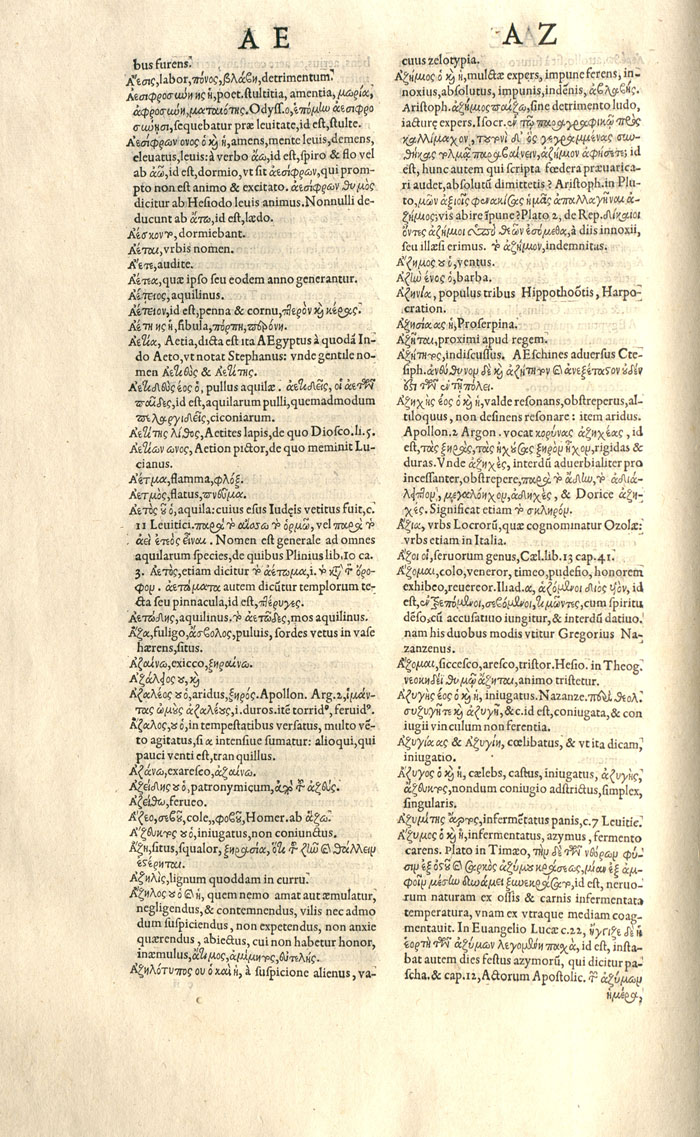 A E
bus furens.
Ἄεσις, labor, πόνος, βλάβη, detrimentum.
Ἀεσιφροσύνης ἡ, poet. stultitia, amentia, μωρία,
ἀφροσύνη, ματαιότης. Odyss. ο, ἑπόμην ἀεσιφρο
σύνῃσι, sequebatur præ leuitate, id est, stulte.
Ἀεσίφρων ονος ὁ κὴ ἡ, amens, mente leuis, demens,
eleuatus, leuis: à verbo ἄω, id est, spiro & flo vel
ab ἀῶ, id est, dormio, vt sit ἀεσίφρων, qui prom-
pto non est animo & excitato. ἀεσίφρων θυμὸς
dicitur ab Hesiodo leuis animus. Nonnulli de-
ducunt ab ἄτω, id est, lædo.
Ἄεσκοντ, dormiebant.
Ἄεται, vrbis nomen.
Ἄετε, audite.
Ἀέτεα, quæ ipso seu eodem anno generantur.
Ἀέτειος, aquilinus.
Ἀέτειον, id est, penna & cornu, πτερὸν κὴ κέρας.
Ἀέτη ης ἡ, fibula, πόρπη,
Ἀετία, Aetia, dicta est ita AEgyptus à quodā In-
do Aeto, vt notat Stephanus: vnde gentile no-
men Ἀέτιος & Ἀετίτης.
Ἀετιδεὺς έος ὁ, pullus aquilæ. ἀετιδεῖς, οἱ ἀετῶν
παῖδες, id est, aquilarum pulli, quemadmodum
πελαργιδεῖς, ciconiarum.
Ἀετίτης λίθος, Aetites lapis, de quo Diosco. li. 5.
Ἀετίων ωνος, Aetion pictor, de quo meminit Lu-
cianus.
Ἄετμα, flamma, φλόξ.
Ἀετμὸς, flatus, πνεῦμα.
Ἀετὸς οῦ ὁ, aquila: cuius esus Iudęis vetitus fuit, c.
11 Leuitici. παρὰ τὸ ἀΐσσω τὸ ὁρμῶ, vel παρὰ τὸ
ἀεὶ ἔτεος εἶναι. Nomen est generale ad omnes
aquilarum species, de quibus Plinius lib. 10 ca.
3. Ἀετὸς, etiam dicitur τὸ ἀέτωμα, i. τὸ ὄρο-
φον. ἀετώματα autem dicūtur templorum te-
cta seu pinnacula, id est, πτέρυγες.
Ἀετώδης, aquilinus. τὸ ἀετῶδες, mos aquilinus.
Ἄζα, fuligo, ἄσβολος, puluis, sordes vetus in vase
hærens, situs.
Ἀζαίνω, exicco, ξηραίνω.
Ἀζάλφος κὴ
Ἀζαλέος ου ὁ, aridus, ξηρός. Apollon. Arg. 2, ἱμάν-
τας ὠμοὺς ἀζαλέους, i. duros, itē torrid⁹, feruid⁹.
Ἄζαλος, ου ὁ, in tempestatibus versatus, multo vē-
to agitatus, si α intensiue sumatur: alioqui, qui
pauci venti est, tranquillus.
Ἀζάνω, exaresco, ἀζαίνω.
Ἀζείδης ου ὁ, patronymicum,
Ἀζείθω, ferueo.
Ἄζεο, σέβου, cole,, φοβοῦ, Homer. ab ἅζω.
Ἄζευκτος ου ὁ, iniugatus, non coniunctus.
Ἄζη, situs, squalor, ξηρασία, θάλλειν
ἐστέρηται.
Ἀζηλὶς, lignum quoddam in curru.
Ἄζηλος ου ὁ κὴ ἡ, quem nemo amat aut æmulatur,
negligendus, & contemnendus, vilis nec admo
dum suspiciendus, non expetendus, non anxie
quærendus, abiectus, cui non habetur honor,
inæmulus, ἄτιμος, ἀμίμητος, εὐτελής.
Ἀζηλότυπος ου ὁ καὶ ἡ, à suspicione alienus, va-
A Z
cuus zelotypia.
Ἀζήμιος ὁ κὴ ἡ, mulctæ expers, impune ferens, in-
noxius, absolutus, impunis, indēnis, ἀβλαβής.
Aristoph. ἀζήμιος παίζω, sine detrimento ludo,
iacturę expers. Isocr. ἐν τῷ παραγραφικῷ πρὸς
καλλίμαχον, γεγραμμένας συν-
θήκας παραβαίνειν, ἀζήμιον ἀφήσετε; id
est, hunc autem qui scripta fœdera præuarica-
ri audet, absolutū dimittetis? Aristoph. in Plu-
to, μῶν ἀξιοῖς φενακίσας ἡμᾶς ἀπαλλαγῆναι ἀ-
ζήμιος; vis abire īpune? Plato 2, de Rep. δίκαιοι
ὄντες ἀζήμιοι ὑπὸ θεῶν ἐσόμεθα, à diis innoxii,
seu illæsi erimus. τὸ ἀζήμιον, indemnitas.
Ἄζημος ου ὁ, ventus.
Ἀζὴν ένος ὁ, barba.
Ἀζηνία, populus tribus Hippothoōtis, Harpo-
cration.
Ἀζησίας ἡ, Proserpina.
Ἄζηται, proximi apud regem.
Ἀζήτητος, indiscussus. AEschines aduersus Cte-
siph. ἀνεύθυνον δὲ κὴ ἀζήτητον κὴ ἀνεξέταστον οὐδέν
ἐστι τῶν ἐν τῇ πόλει.
Ἀζηχὴς έος ὁ κὴ ἡ, valde resonans, obstreperus, al-
tiloquus, non desinens resonare: item aridus.
Apollon. 2 Argon. vocat κορύνας ἀζηχέας, id
est, τὰς ξηρὰς, τὰς ἠχούσας ξηρὸν ἦχον, rigidas &
duras. Vnde ἀζηχὲς, interdū adverbialiter pro
incessanter, obstrepere, παρὰ τὸ ἀδιά-
λειπτον, μεγαλόηχον, ἀδιηχὲς, & Dorice ἀζη-
χές. Significat etiam τὸ σκληρόν.
Ἀζία, vrbs Locrorū, quæ cognominatur Ozolæ:
vrbs etiam in Italia.
Ἄζοι οἱ, seruorum genus, Cæl. lib. 13 cap. 41.
Ἅζομαι, colo, veneror, timeo, pudesio, honorem
exhibeo, reuereor. Iliad. α, ἁζόμενοι διὸς υἱὸν, id
est, ἐντρεπόμενοι, σεβόμενοι, τιμῶντες, cum spiritu
dēso, cū accusatiuo iungitur, & interdū datiuo.
nam his duobus modis vtitur Gregorius Na-
zanzenus.
Ἄζομαι, siccesco, aresco, tristor. Hesio. in Theog.
νεοκηδέϊ θυμῷ ἄζηται, animo tristetur.
Ἀζυγὴς έος ὁ κὴ ἡ, iniugatus. Nazanze. περὶ θεολ.
συζυγῆ τε κὴ ἀζυγῆ, &c. id est, coniugata, & con
iugii vinculum non ferentia.
Ἀζυγία ας & Ἀζυγίη, cœlibatus, & vt ita dicam,
iniugatio.
Ἄζυγος ὁ κὴ ἡ, cælebs, castus, iniugatus, ἀζυγής,
ἄζευκτος, nondum coniugio adstrictus, simplex,
singularis.
Ἀζυμίτης ἄρτος, infermētatus panis, c. 7 Leuitic.
Ἄζυμος ὁ κὴ ἡ, infermentatus, azymus, fermento
carens. Plato in Timæo, τὴν δὲ τῶν νεύρων φύ-
σιν ἐξ ὀστοῦ κὴ σαρκὸς ἀζύμου κράσεως, μίαν ἐξ ἀμ-
φοῖν μέσην δυνάμει ξυνεκράσατο, id est, neruo-
rum naturam ex ossis & carnis infermentata
temperatura, vnam ex vtraque mediam coag-
mentauit. In Euangelio Lucæ c. 22, ἤγγιζε δὲ ἡ
ἑορτὴ τῶν ἀζύμων λεγομένη πάσχα, id est, insta-
bat autem dies festus azymorū, qui dicitur pa-
scha. & cap. 12, Actorum Apostolic. τῶν ἀζύμων
ἡμέρα,